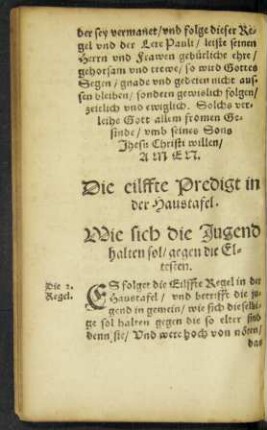 der sey vermanet/vnd folge dieser Re-
gel vnd der Lere Pauli/ leiste seinen
Herrn vnd Frawen gebürliche ehre/
gehorsam vnd trewe/ so wird Gottes
Segen/ gnade vnd gedeien nicht aus-
sen bleiben/ sondern gewislich folgen/
zeitlich vnd ewiglich. Solchs ver-
leihe Gott allem fromen Ge-
sinde/ vmb seines Sons
Jhesu Christi willen/
AMEN.
Die eilffte Predigt in
der Haustafel.
Wie sich die Jugend
halten sol/ gegen die El-
testen.
Die
Regel.
ES folget die Eilffte Regel in der
Haustafel/ vnd betrifft die ju-
gend in gemein/ wie sich dieselbi-
ge sol halten gegen die so elter sind
denn sie/ Vnd were hoch von nöten/
das